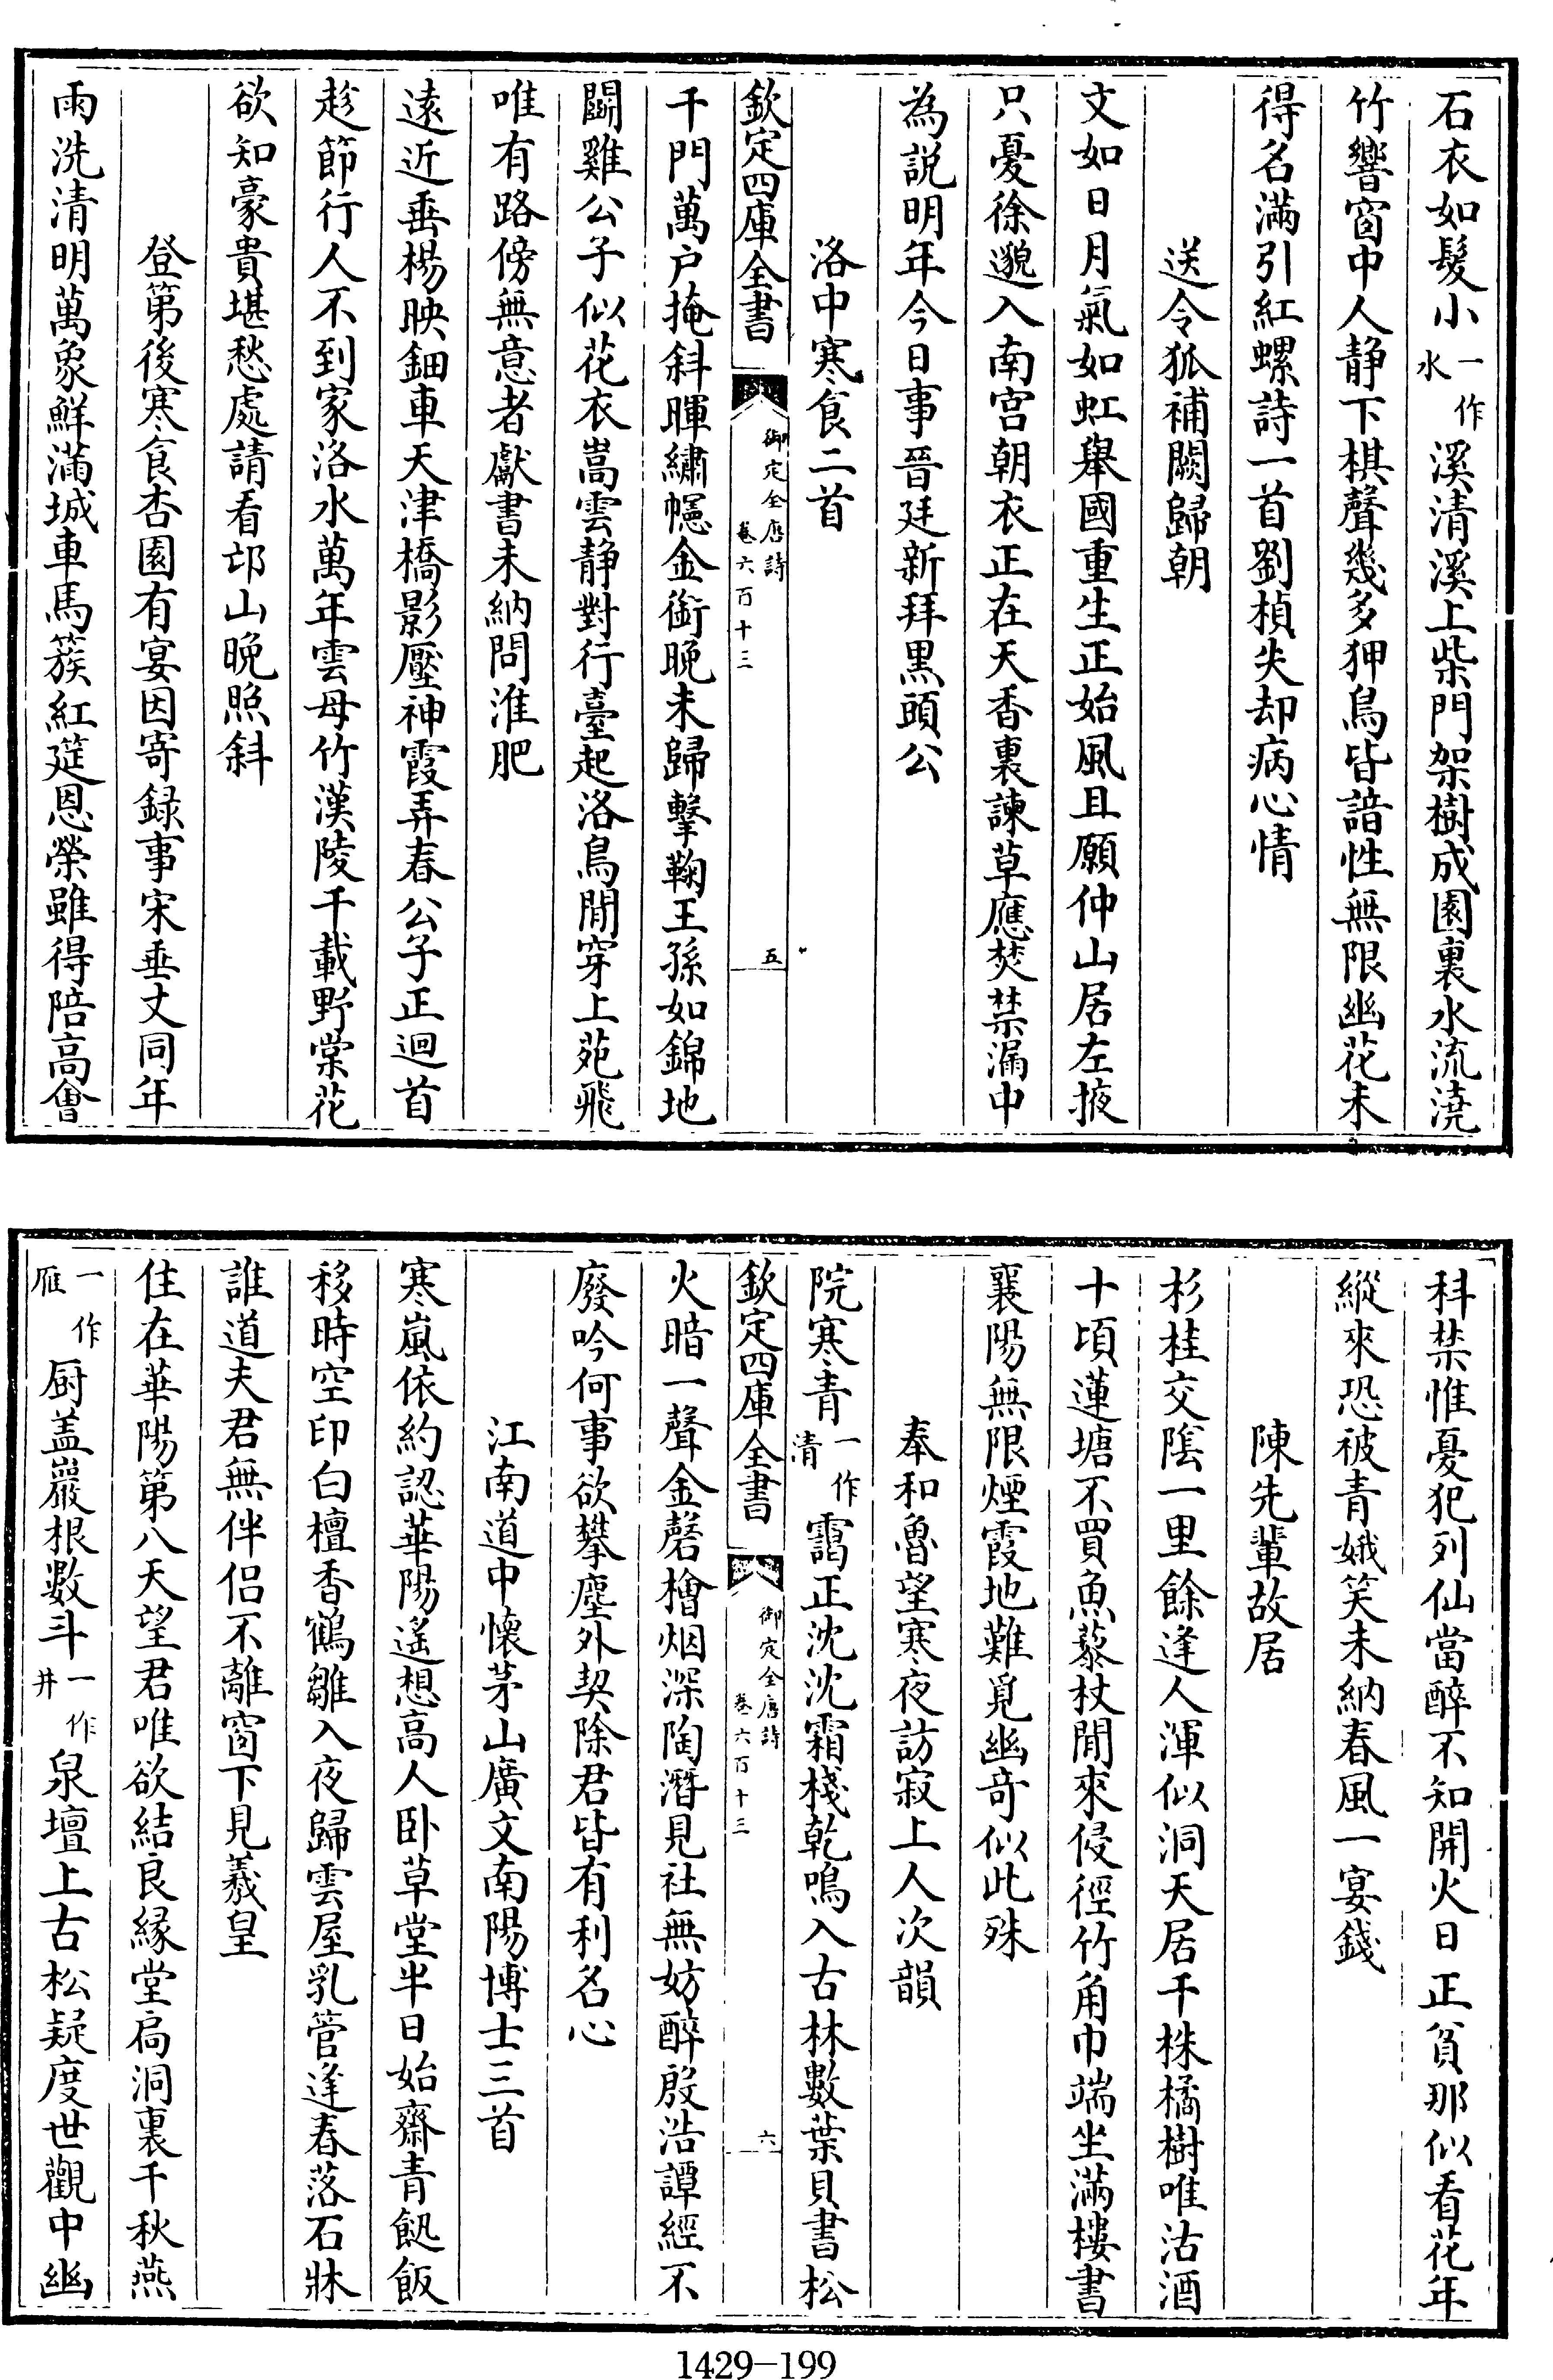 石衣如髮小一作水溪清溪上柴門架樹成園裏水流澆
竹響窗中人静下棋聲幾多狎鳥皆諳性無限幽花未
得名滿引紅螺詩一首劉楨失却病心情
送令狐補闕歸朝
文如日月氣如虹舉國重生正始風且願仲山居左掖
只憂徐邈入南宫朝衣正在天香裏諫草應焚禁漏中
為説明年今日事晉廷新拜黒頭公
洛中寒食二首
欽定四庫全書
御定全唐詩
卷六百十三
五
千門萬户掩斜暉繡幰金銜晚未歸擊鞠王孫如錦地
鬬雞公子似花衣嵩雲静對行臺起洛鳥閒穿上苑飛
唯有路傍無意者獻書未納問淮肥
遠近垂楊映鈿車天津橋影壓神霞弄春公子正迴首
趁節行人不到家洛水萬年雲母竹漢陵千載野棠花
欲知豪貴堪愁處請看邙山晚照斜
登第後寒食杏園有宴因寄録事宋垂文同年
雨洗清明萬象鮮滿城車馬簇紅筵恩榮雖得陪高會
科禁惟憂犯列仙當醉不知開火日正貧那似看花年
縱來恐被青娥笑未納春風一宴錢
陳先輩故居
杉桂交隂一里餘逢人渾似洞天居千株橘樹唯沽酒
十頃蓮塘不買魚藜杖閒來侵徑竹角巾端坐滿樓書
襄陽無限煙霞地難覓幽奇似此殊
奉和魯望寒夜訪寂上人次韻
院寒青一作清靄正沈沈霜棧乾鳴入古林數葉貝書松
欽定四庫全書
御定全唐詩
卷六百十三
六
火暗一聲金磬檜烟深陶潛見社無妨醉殷浩譚經不
廢吟何事欲攀塵外契除君皆有利名心
江南道中懷茅山廣文南陽博士三首
寒嵐依約認華陽遥想高人卧草堂半日始齋青䭀飯
移時空印白檀香鶴雛入夜歸雲屋乳管逢春落石牀
誰道夫君無伴侣不離窗下見羲皇
住在華陽第八天望君唯欲結良縁堂扃洞裏千秋燕
一作雁厨盖巖根數斗一作井泉壇上古松疑度世觀中幽
1429-199